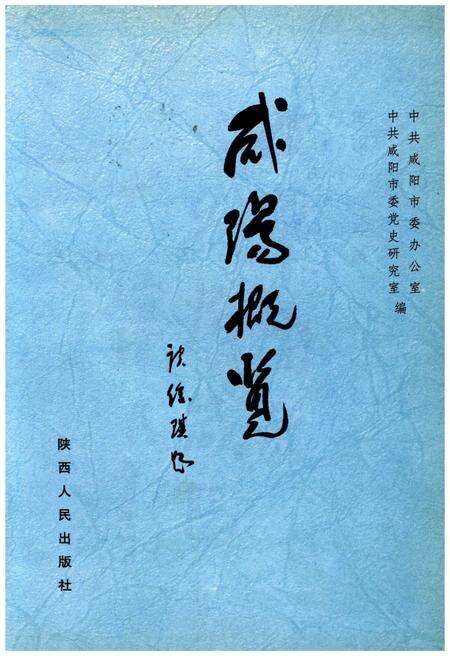 中共咸阳市委办公室
中共咸阳市委党史研究室 编
咸陽概览
陕西人民出版社